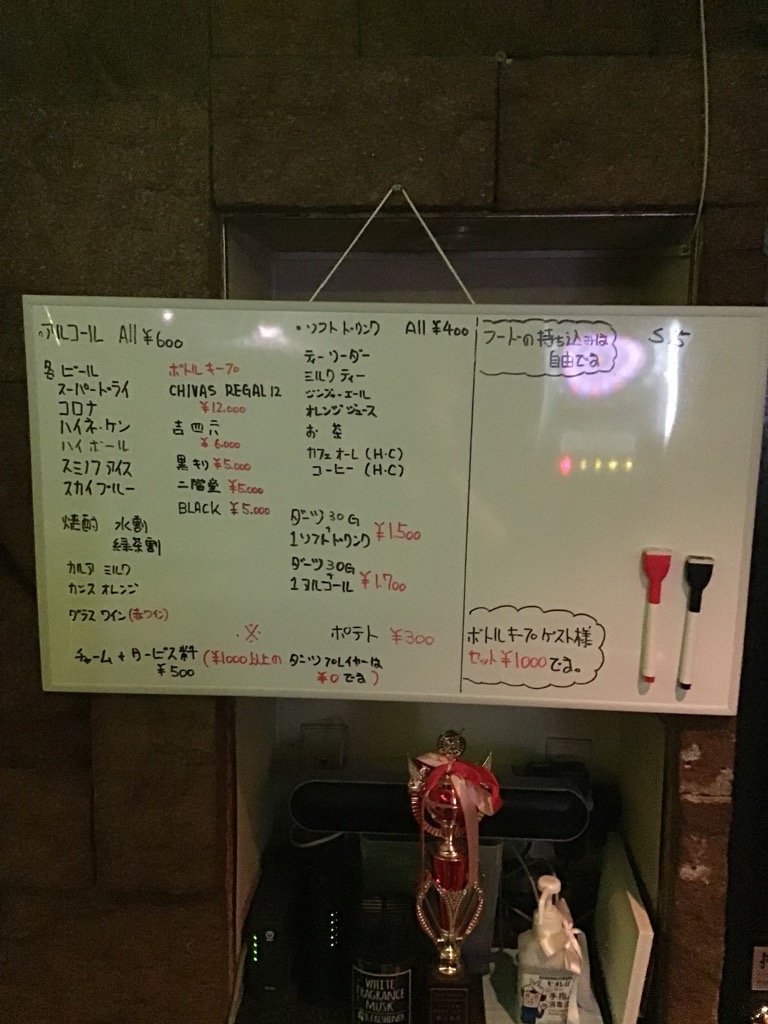 アルコール All ¥600
各ビール
スーパードライ
コロナ
ハイネケン
ハイボール
スミノフアイス
スカイブルー
焼酎 水割
緑茶割
カルア ミルク
カシス オレンジ
グラス ワイン(赤ワイン)
ボトルキープ
CHIVAS REGAL 12
¥12.000
吉四六
¥6.000
黒キリ ¥5.000
二階堂 ¥5.000
BLACK ¥5.000
・ソフトドリンク All ¥400
ティーソーダー
ミルクティー
ジンジャーエール
オレンジジュース
お茶
カフェオーレ (H・C)
コーヒー (H・C)
ダーツ30G
+
1ソフトドリンク ¥1.500
ダーツ30G
+
1アルコール ¥1.700
ポテト ¥300
※
チャーム + サービス料 (¥1000以上の ダーツプレイヤーは
¥500 ¥0です)
フードの持ち込みは
自由です
S 5
ボトルキープゲスト様
セット¥1000です。
WHITE
FRAGRANCE
MUSK
手指
消毒